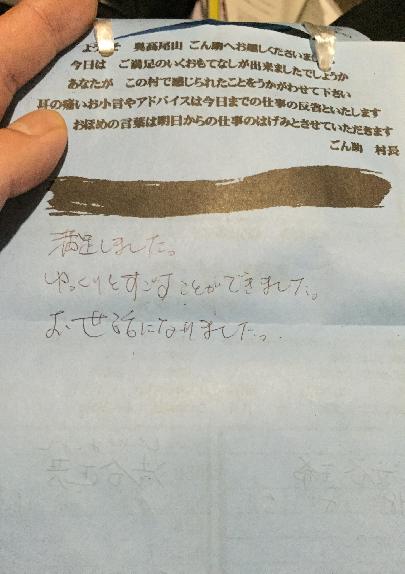 ようこそ 奥高尾山 ごん助へお越しくださいました
今日は ご満足のいくおもてなしが出来ましたでしょうか
あなたが この村で感じられたことをうかがわせて下さい
耳の痛いお小言やアドバイスは今日までの仕事の反省といたします
おほめの言葉は明日からの仕事のはげみとさせていただきます
ごん助 村長
満足しました。
ゆっくりとすごすことができました。
お世話になりました。